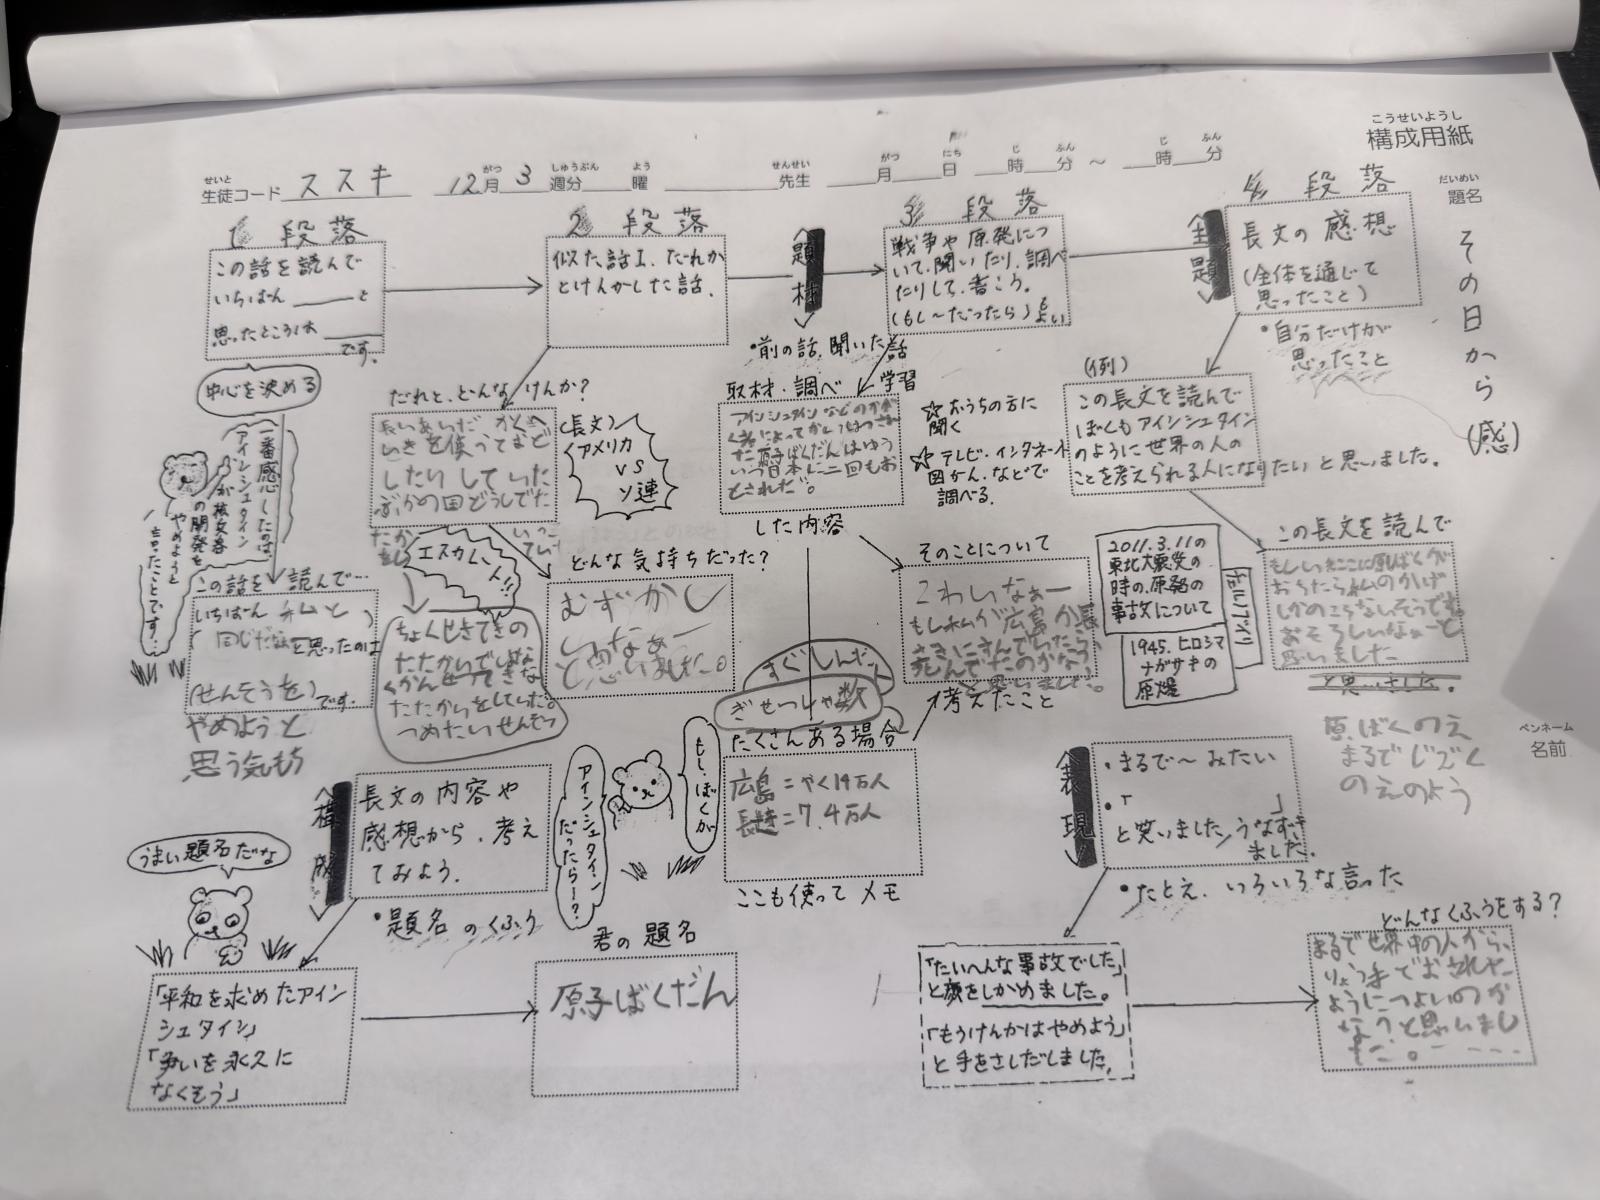 こうせいようし
構成用紙
せいと
生徒コード ススキ
がつ しゅうぶん よう
12月3週分 曜
せんせい
先生
がつ にち じ ふん じ ふん
月 日 時 分 ~ 時 分
だいめい
題名
その日から
(感)
ペンネーム
名前
1 段落
この話を読んで
いちばん ______と
思ったところは
______です。
中心を決める
一番感心したのは、
アインシュタイン
が核兵器
の開発を
やめようと
言ったことです。
この話を読んで…
いちばん 私と
同じだなと思ったのは
(せんそうを)です。
やめようと
思う気もち
2 段落
似た話1、だれか
とけんかした話。
だれと、どんなけんか?
長いあいだ かくへ
いきを使っておど
したり していた
ぶかの国どうしでた
たかいっ
(長文)
アメリカ
VS
ソ連
エスカレート!!
ちょくせきてきの
たたかいではなく
たたかいをしていた。
つめたいせんそう
どんな気持ちだった?
むずかし
いなぁー
と思いました。
〈題材〉
・前の話、聞いた話
3 段落
戦争や原発につ
いて、聞いたり、調べ
たりして、書こう。
(もし~だったら)もよい
取材・調べ学習
アインシュタインなどのかが
く者によってかいはつされ
た原子ばくだんはゆう
いつ日本に二回もお
とされた。
☆おうちの方に
聞く
☆テレビ・インターネット
図かん、などで
調べる。
した内容
そのことについて
こわいなぁー
もし私が広島か長
さきにすんでいたら
死んでたのかなぁ
と思いました。
考えたこと
すぐしんだ
ぎせいしゃ数
たくさんある場合
広島=やく14万人
長崎=7.4万人
ここも使ってメモ
〈主題〉
4 段落
長文の感想
(全体を通じて
思ったこと)
・自分だけが
思ったこと
(例)
この長文を読んで
ぼくもアインシュタイン
のように世界の人の
ことを考えられる人になりたいと思いました。
2011.3.11の
東北大震災の
時の原発の
事故について
1945. ヒロシマ
ナガサキの
原爆
この長文を読んで
もしいまここに原ばくが
おちたら私のかげ
しかのこらなしそうです。
おそろしいなぁーと
思いました
と思いました。
原ばくのえ
まるでじごく
のえのよう
〈構成〉
長文の内容や
感想から、考え
てみよう。
・題名のくふう
うまい題名だな
「平和を求めたアイン
シュタイン」
「争いを永久に
なくそう」
君の題名
原子ばくだん
もし、ぼくが
アインシュタイン
だったらー?
〈表現〉
・まるで~みたい
・「　　　」
と笑いました/うなずき
ました。
・たとえ、いろいろな言った
「たいへんな事故でした」
と顔をしかめました。
「もうけんかはやめよう」
と手をさしだしました。
どんなくふうをする?
まるで世界中の人から、
りょう手でおされた
ようにつよいのか
なぁと思いまし
た。